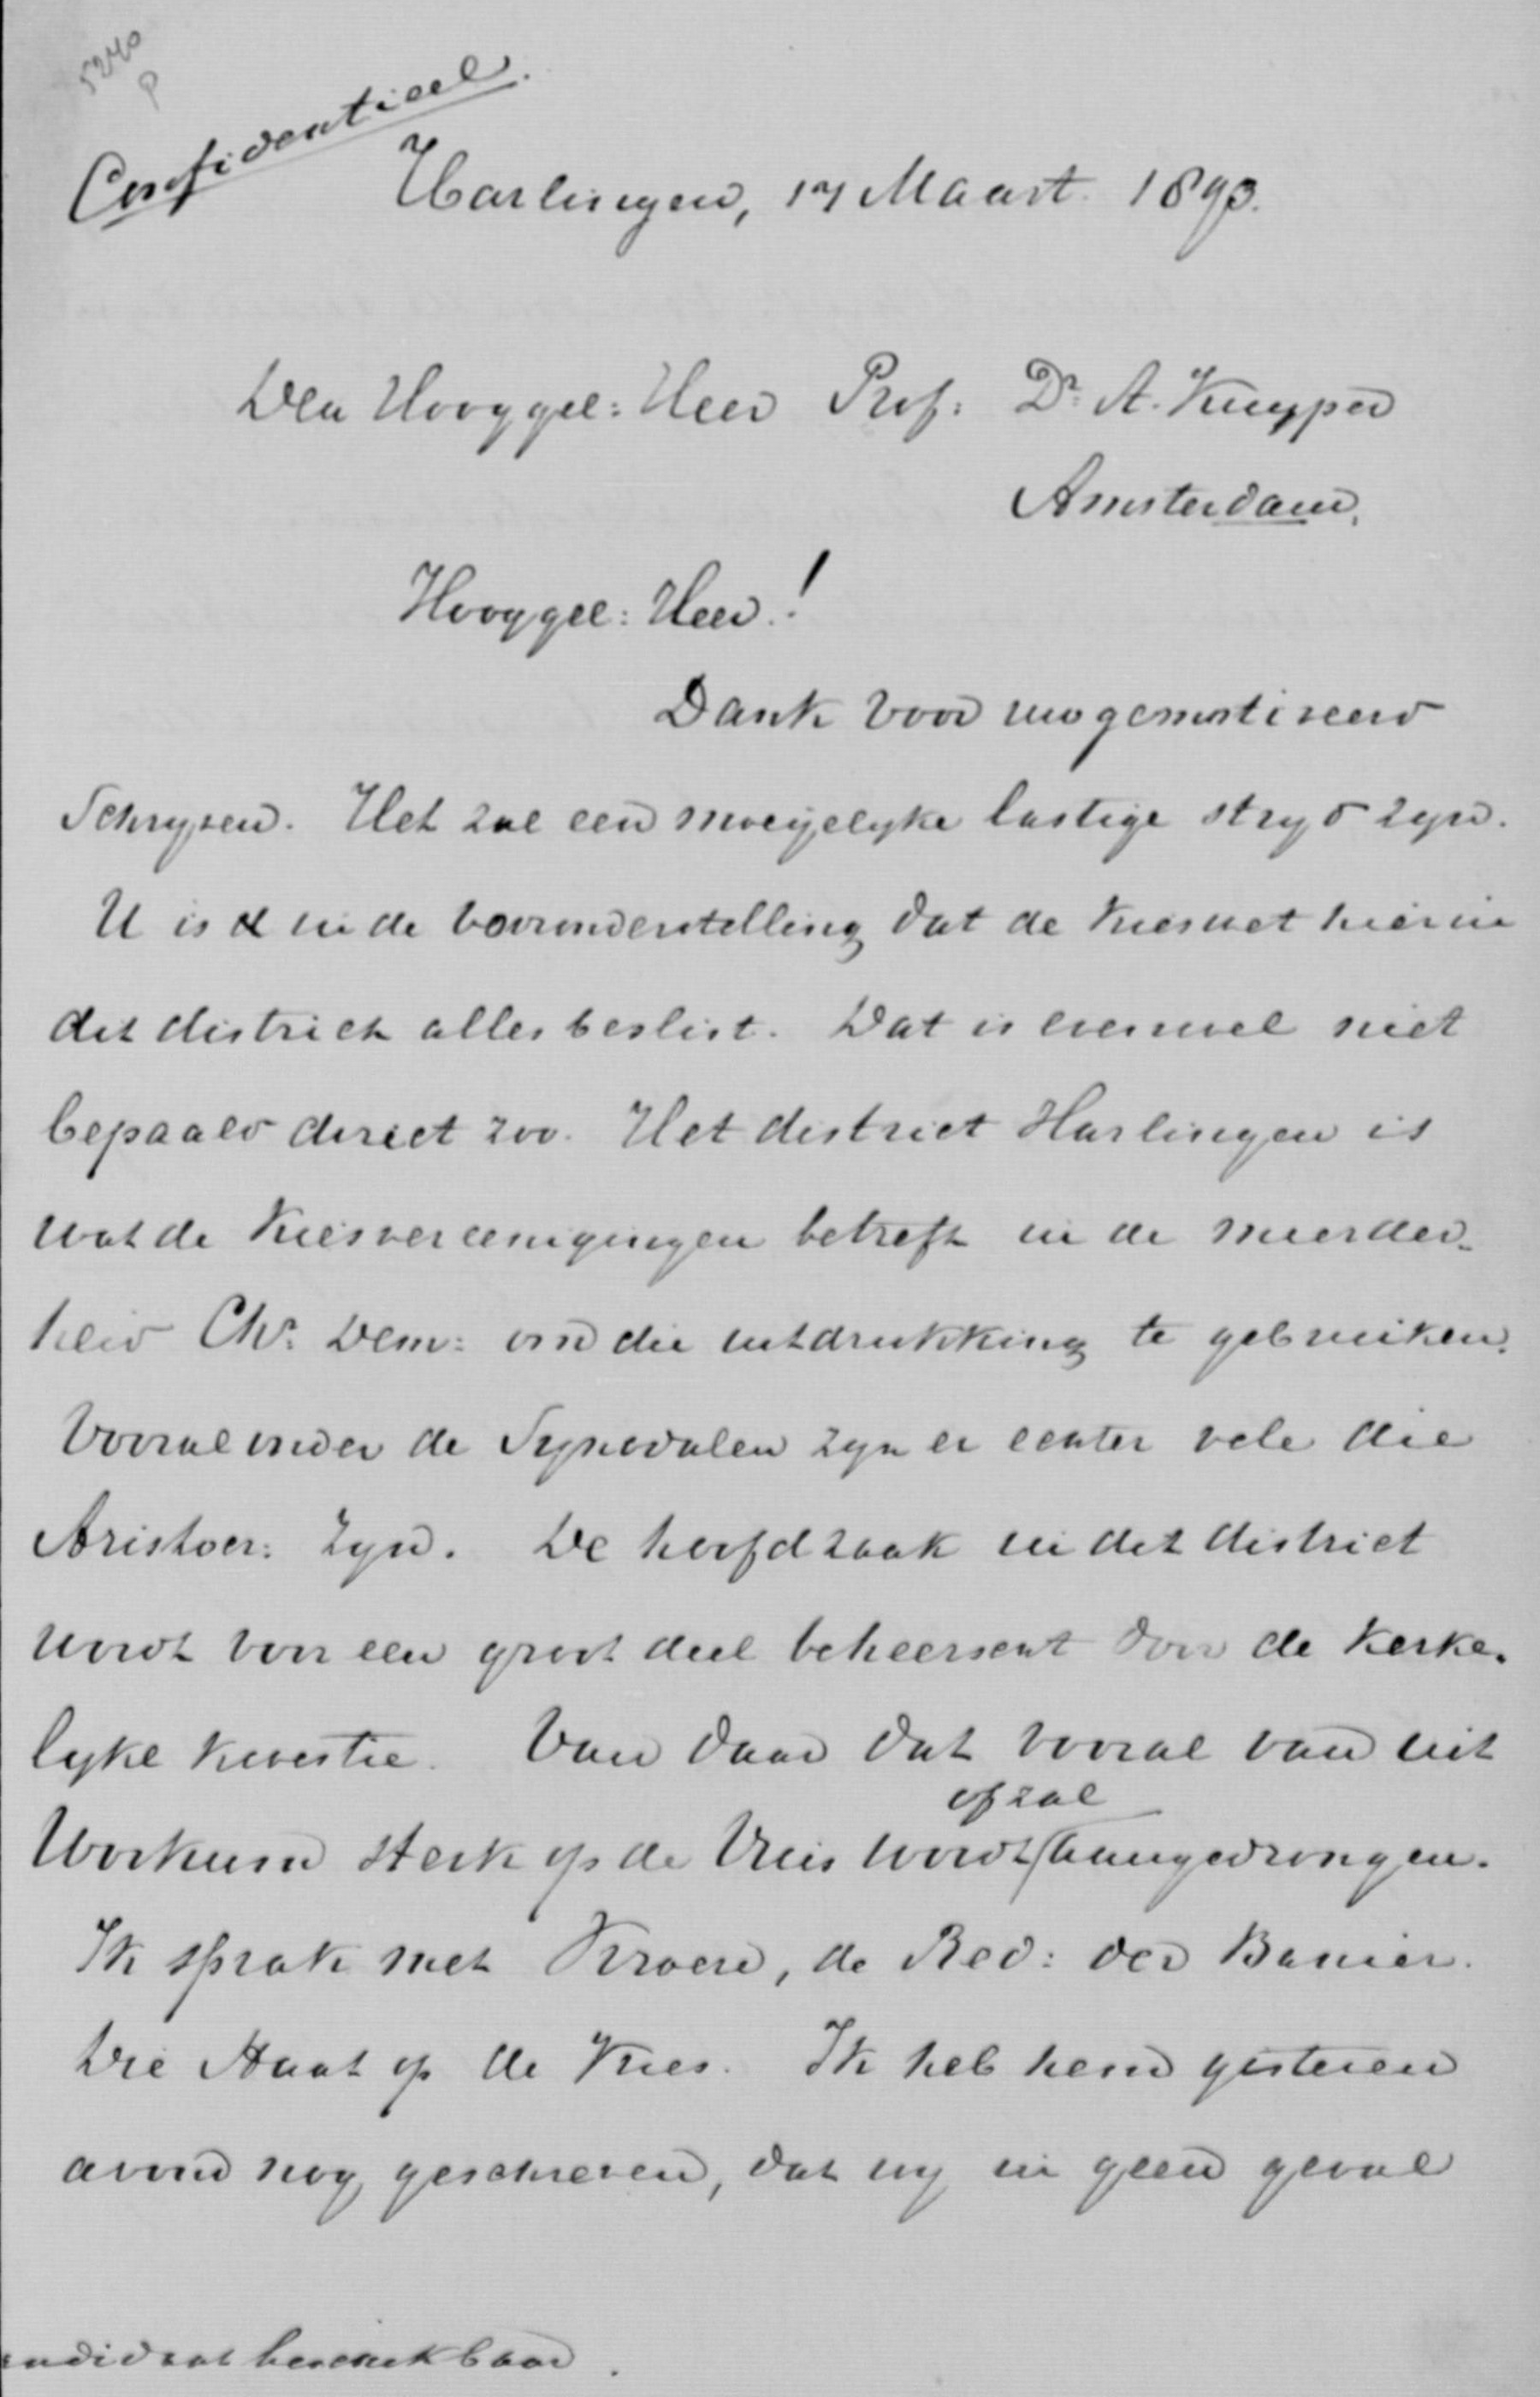 5240
P
Confidentieel.
Harlingen, 17 Maart 1893.
Den Hooggel: Heer Prof: Dr. A. Kuyper
Amsterdam.
Hooggel: Heer!
Dank voor uw gemotiveerd
Schryven. Het zal een moeyelyke lastige stryd zyn.
U is in de vooronderstelling dat de Kieswet hier in
dit district alles beslist. Dat is evenwel niet
bepaald direct zoo. Het district Harlingen is
wat de Kiesvereenigingen betreft in de meerder-
heid Chr. Dem: om die uitdrukking te gebruiken.
Vooral onder de Synodalen zyn er echter vele die
Aristocr: zyn. De hoofdzaak in dit district
wordt voor een groot deel beheerscht door de Kerke-
lyke kwestie. Van daar dat vooral van uit
of zal
Workum sterk op de Vries wordt aangedrongen.
Ik sprak met , de Red: der Banier.
Die staat op de Vries. Ik heb hem gisteren
avond nog geschreven, dat wy in geen geval
andidaat beschikbaar.